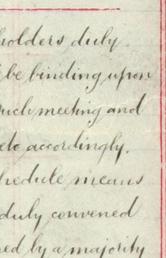 holders duly
be binding upon
such meeting and
accordingly.
hedule means
duly convened
ed by a majority